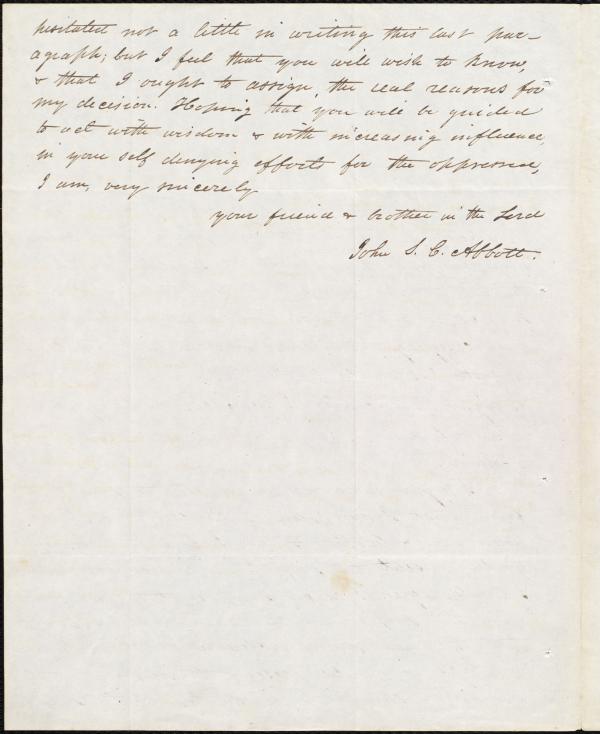 hesitated not a little in writing this last par-
agraph; but I feel that you will wish to know,
& that I ought to assign, the real reasons for
my decision. Hoping that you will be guided
to act with wisdom & with increasing influence,
in your self denying efforts for the oppressed,
I am, very sincerely
your friend & brother in the Lord
John S. C. Abbott.